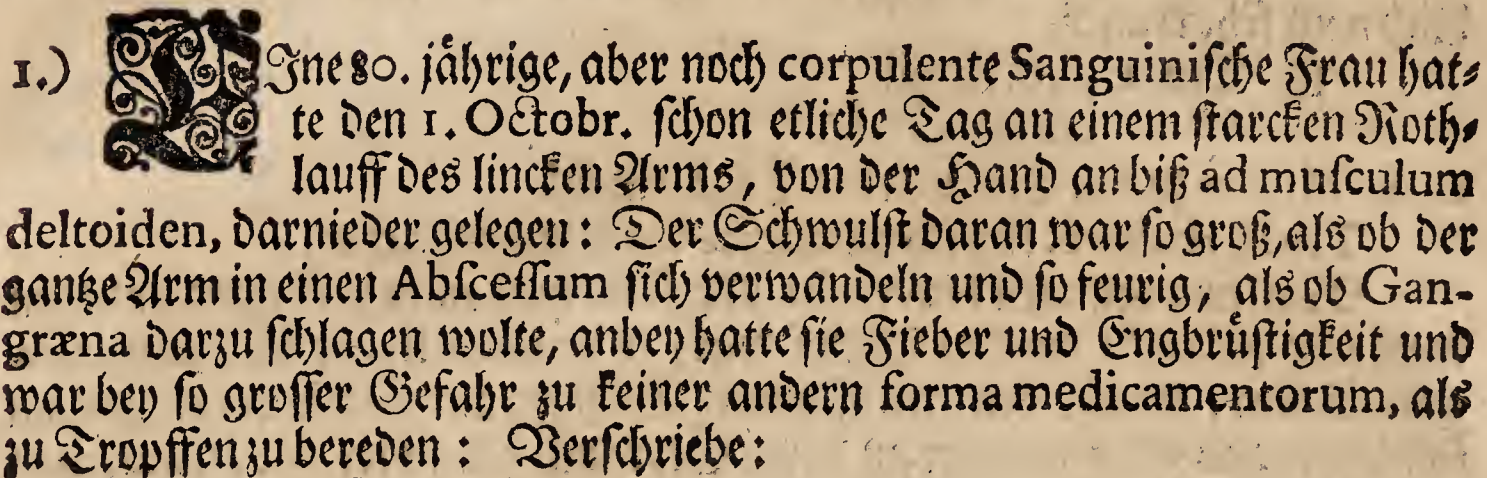 1.) EIne 80. jåhrige, aber noch corpulente Sanguinische Frau hat-
te den 1. Octobr. schon etliche Tag an einem starcken Roth-
lauff des lincken Arms, von der Hand an biß ad musculum
deltoiden, darnieder gelegen: Der Schwulst daran war so groß, als ob der
gantze Arm in einen Abscessum sich verwandeln und so feurig, als ob Gan-
græna darzu schlagen wolte, anbey hatte sie Fieber und Engbrůstigkeit und
war bey so grosser Gefahr zu keiner andern forma medicamentorum, als
zu Tropffen zu bereden: Verschriebe: